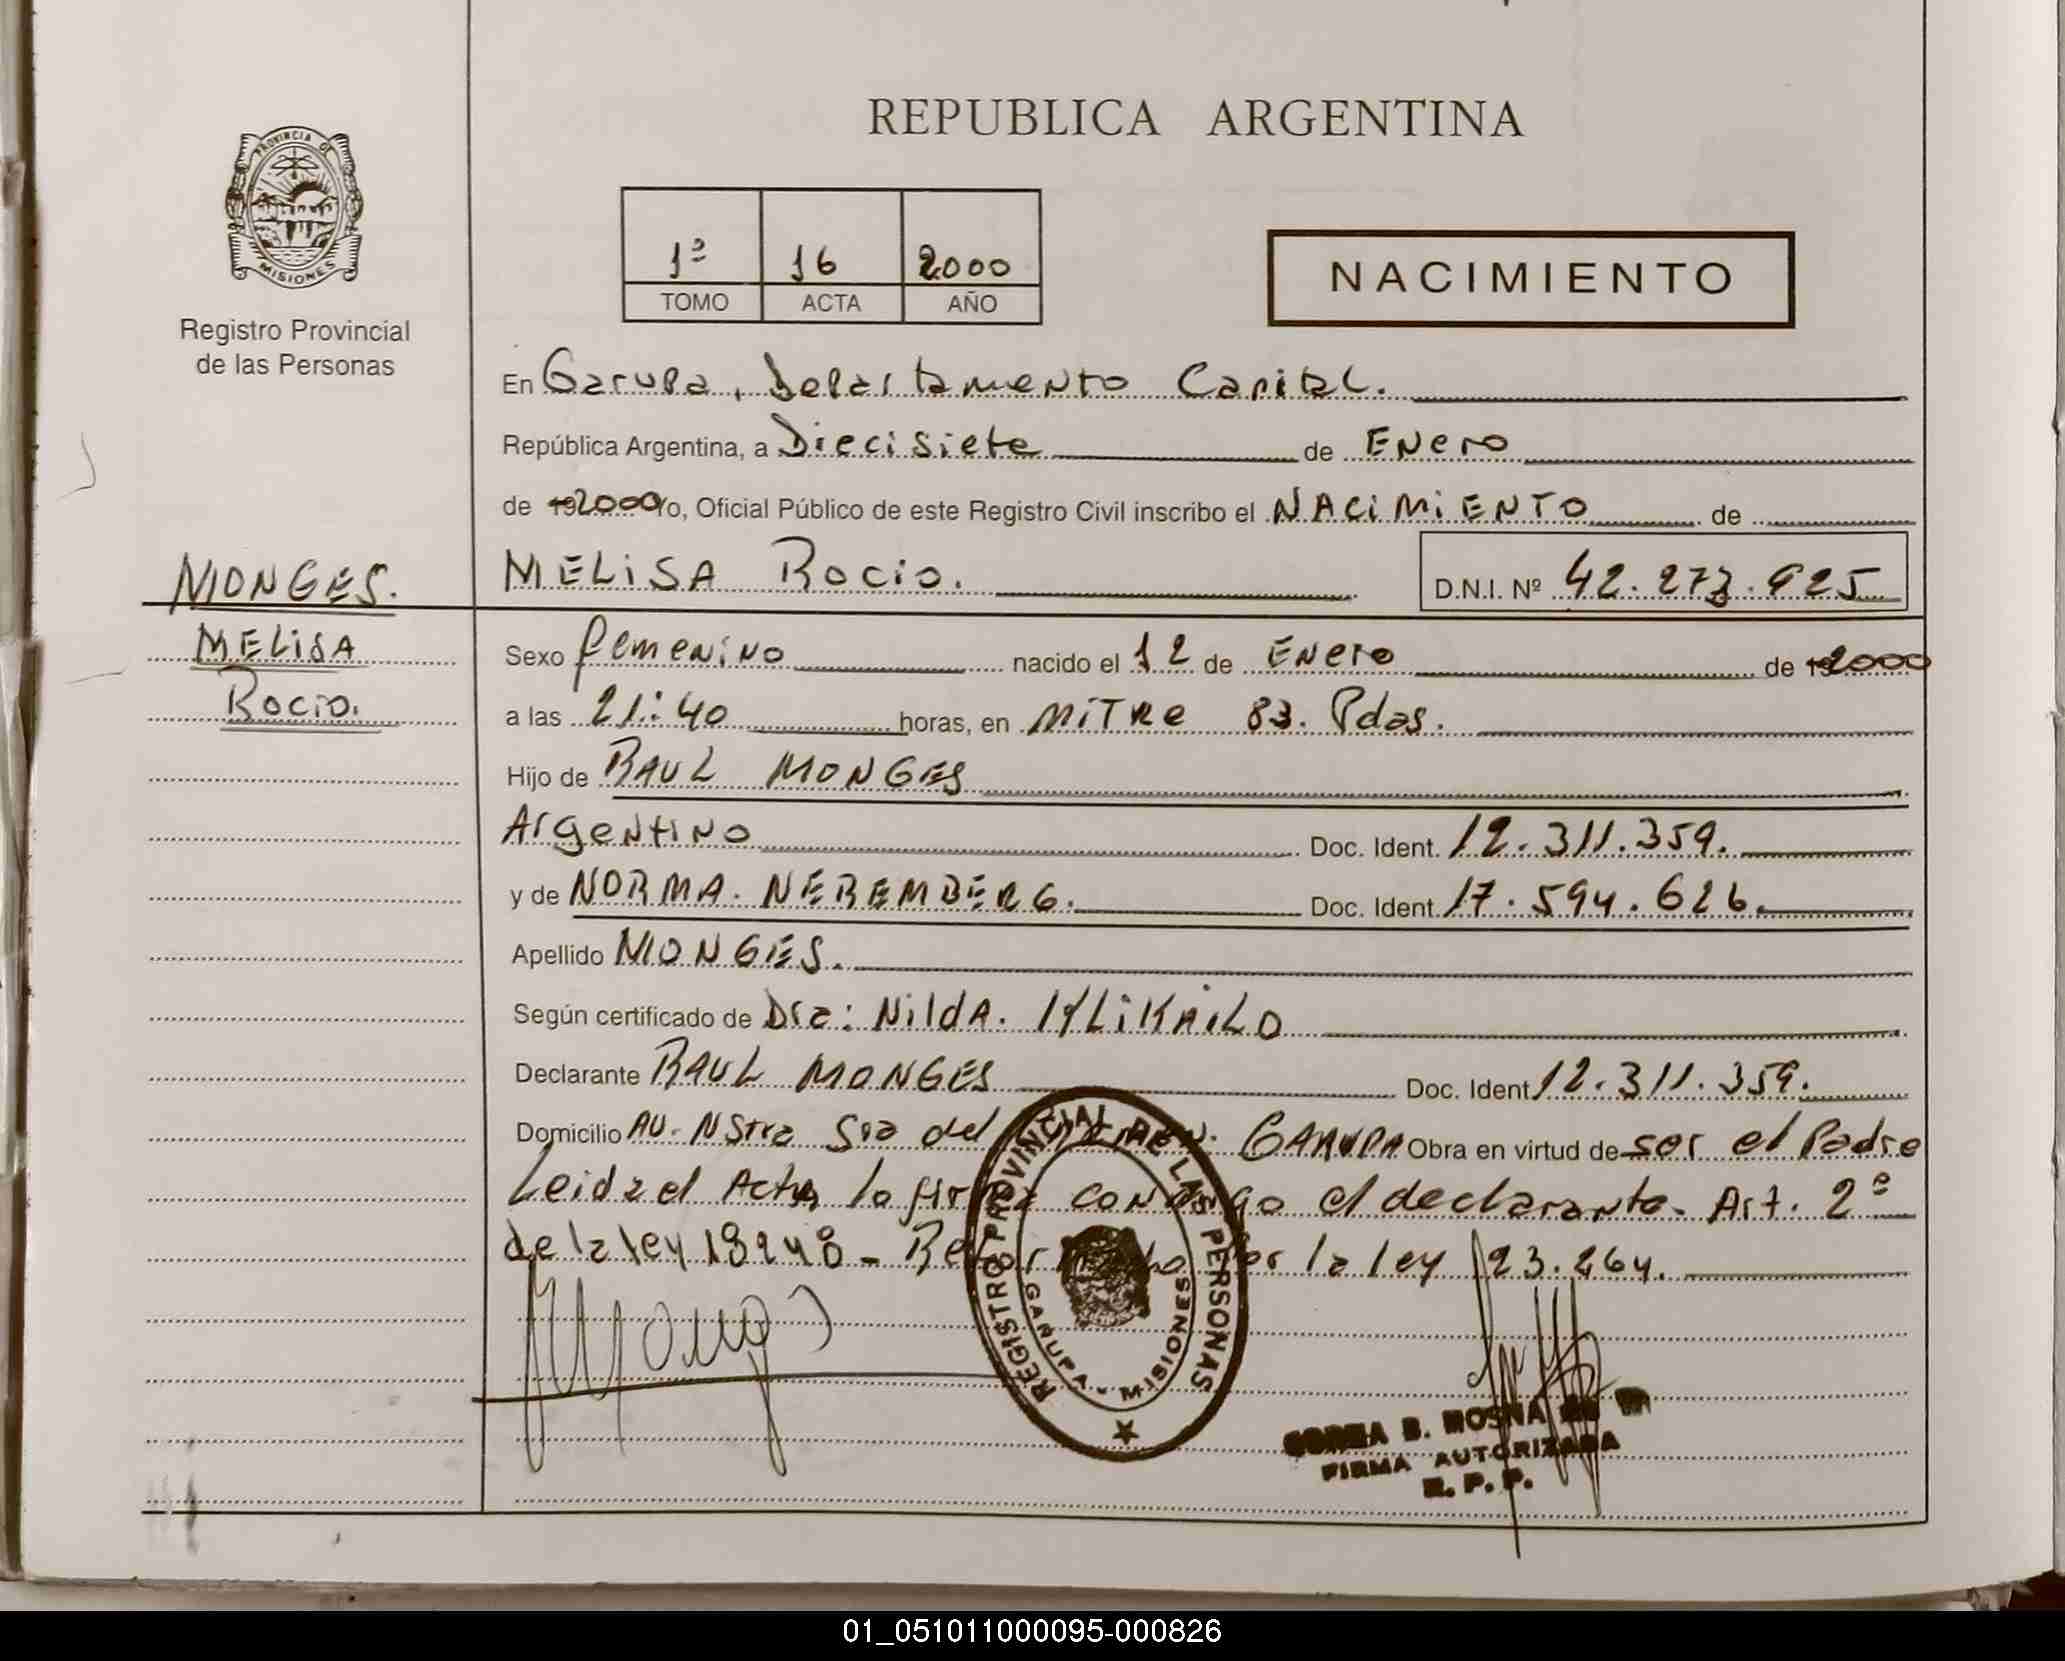 REPUBLICA ARGENTINA
PROVINCIA DE
MISIONES
Registro Provincial
de las Personas
1º 16 2000
TOMO ACTA AÑO
NACIMIENTO
En Garupa, Departamento Capital.
República Argentina, a Diecisiete de Enero
de 192000 Yo, Oficial Público de este Registro Civil inscribo el NACIMIENTO de
MONGES.
MELISA
ROCIO.
MELISA ROCIO. D.N.I. Nº 42.273.925
Sexo femenino nacido el 12 de Enero de 192000
a las 21:40 horas, en MITRE 83. Pdas.
Hijo de RAUL MONGES
Argentino Doc. Ident. 12.311.359.
y de NORMA. NEREMBERG. Doc. Ident. 17.594.626.
Apellido MONGES.
Según certificado de Dra: NILDA. KLIKAILO
Declarante RAUL MONGES Doc. Ident. 12.311.359.
Domicilio AV. Nstra Sra del GARUPA Obra en virtud de ser el Padre
Leida el Acta, la firma conmigo el declarante. Art. 2º
de la ley 18248 - Reformado por la ley 23.264.
REGISTRO PROVINCIAL DE LAS PERSONAS
GARUPA - MISIONES
B. MOSNA
FIRMA AUTORIZADA
R. P. P.
01_051011000095-000826